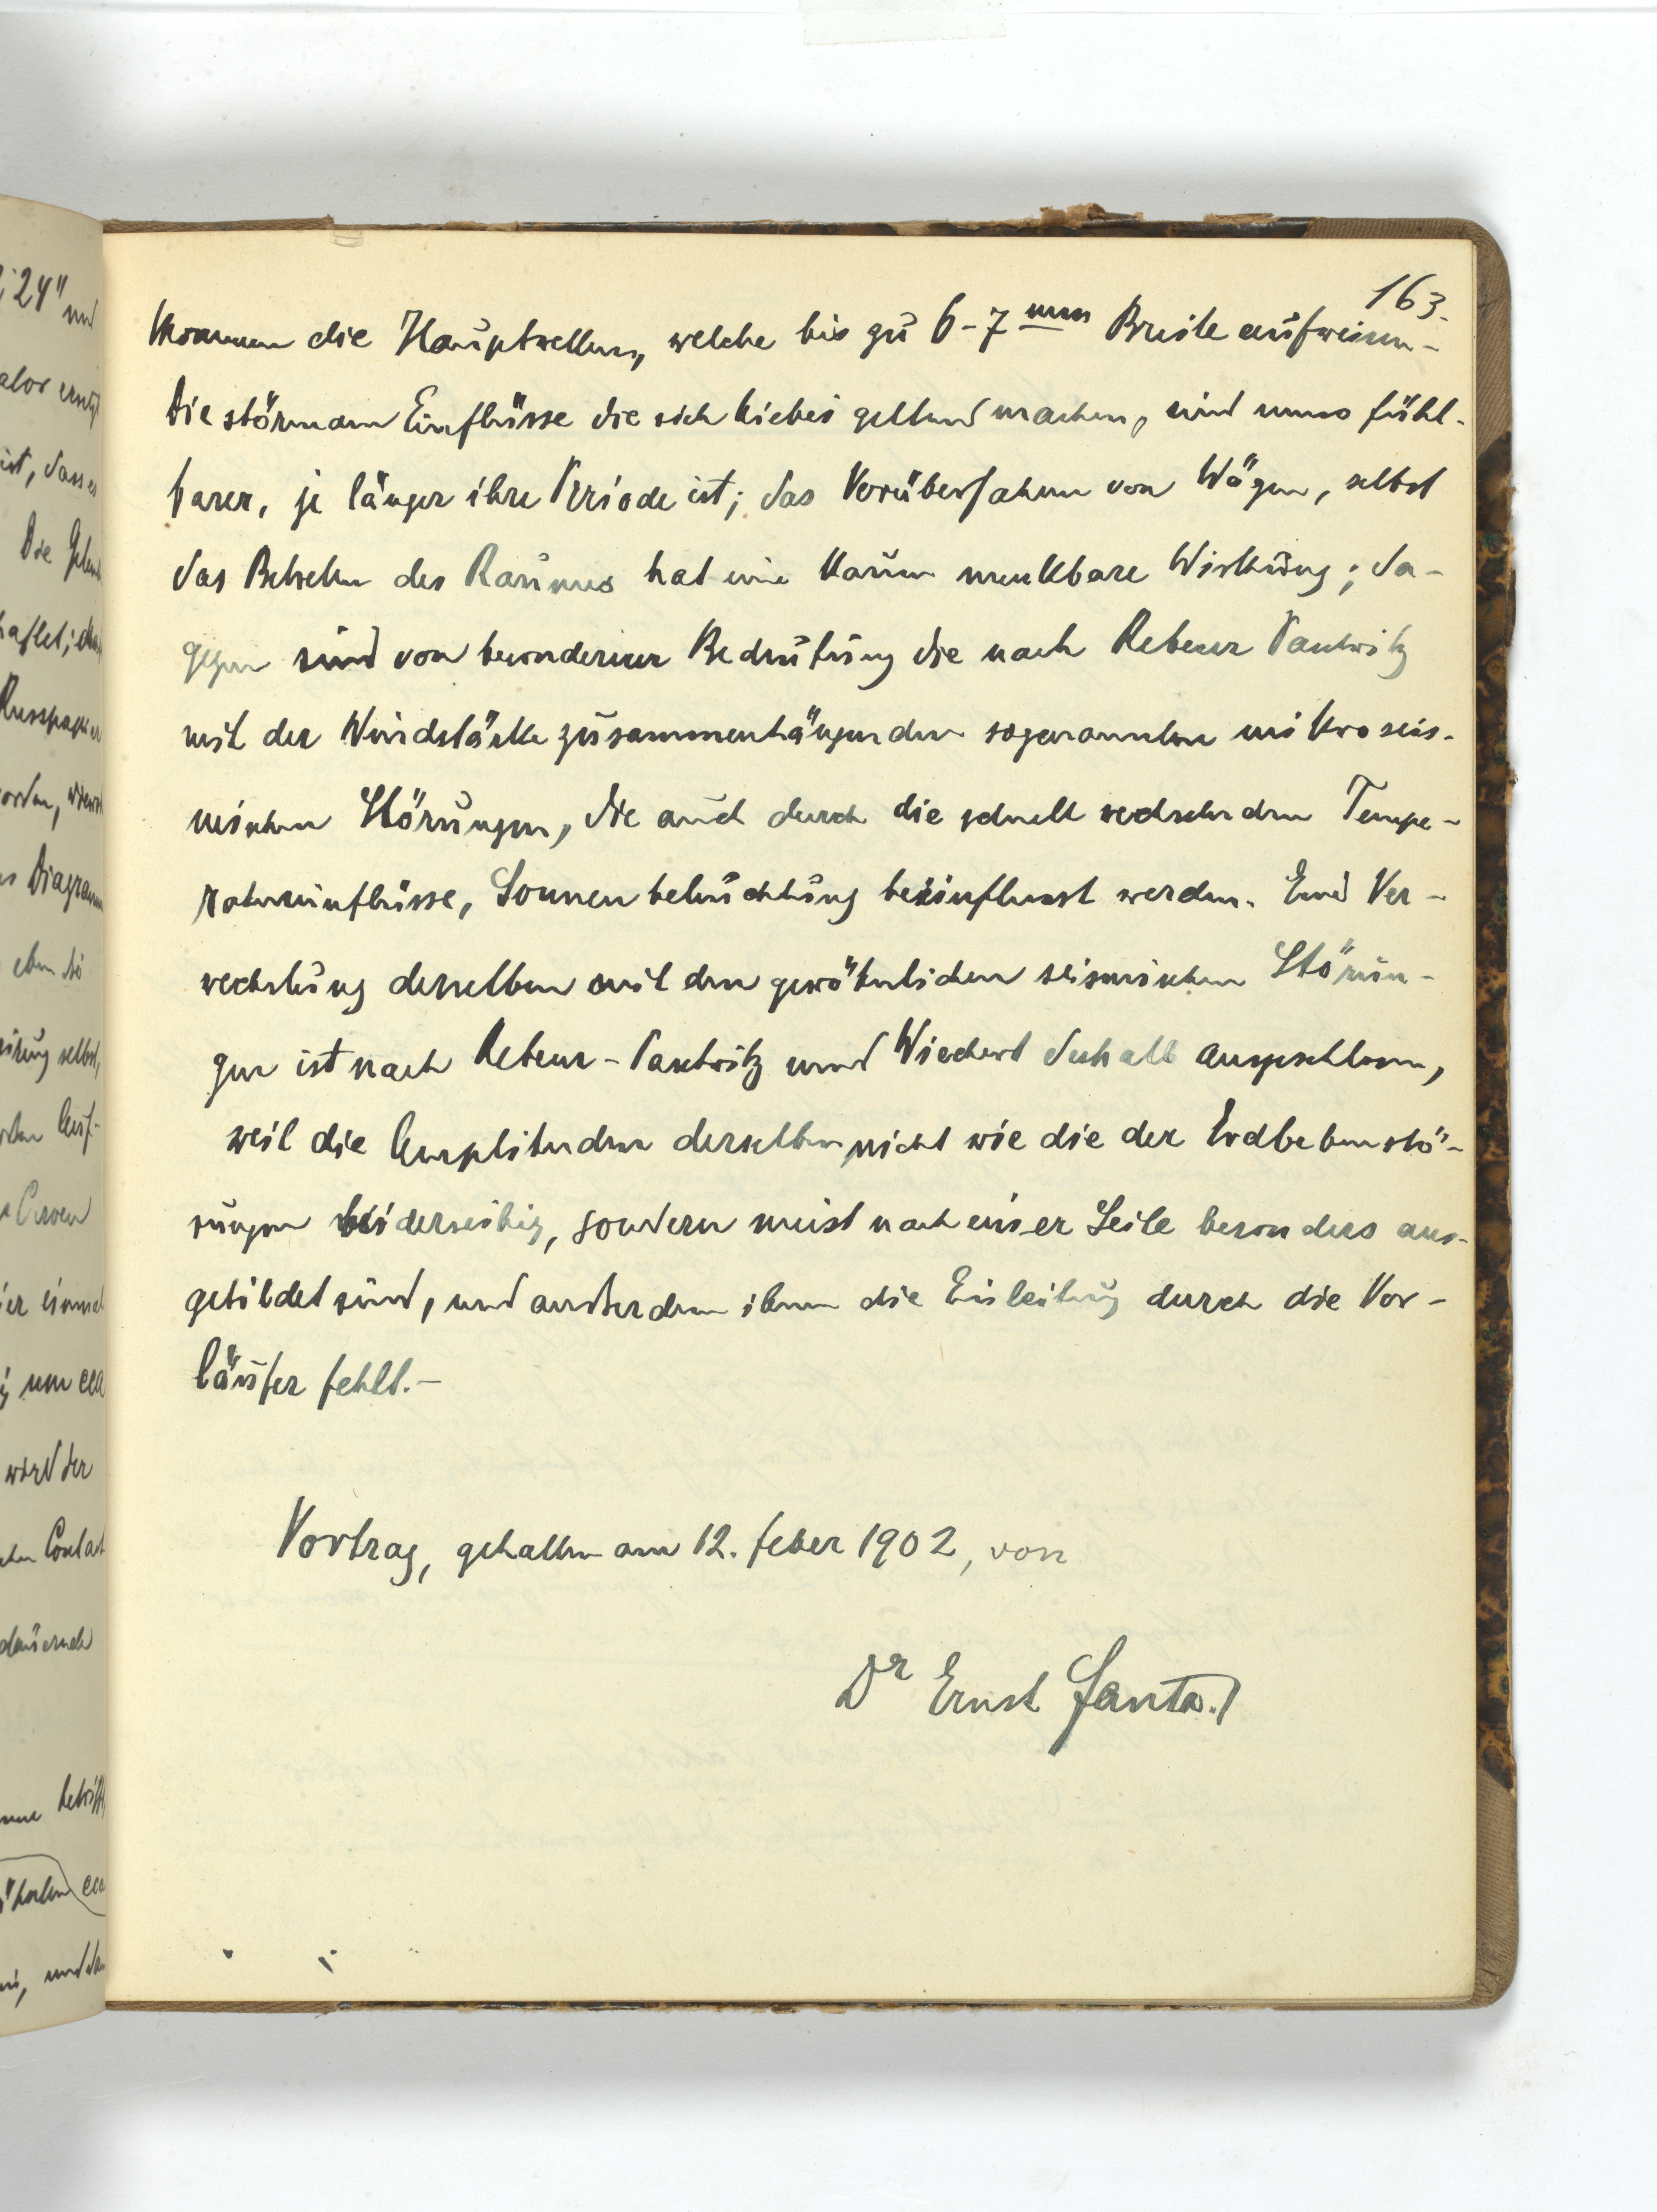 163.
kommen die Hauptwellen, welche bis zu 6-7 mm Breite aufweisen -
Die störenden Einflüsse die sich hiebei geltend machen, sind umso fühl-
barer, je länger ihre Periode ist; das Vorüberfahren von Wägen, selbst
das Betreten des Raumes hat eine kaum merkbare Wirkung; da-
gegen sind von besonderer Bedeutung die nach Rebeur Paschwitz
mit der Windstärke zusammenhängenden sogenannten mikroseis-
mischen Störungen, die auch durch die schnell wechselnden Tempe-
ratureinflüsse, Sonnenbeleuchtung beeinflusst werden. Eine Ver-
wechslung derselben mit den gewöhnlichen seismischen Störun-
gen ist nach Rebeur-Paschwitz und Wiechert deshalb ausgeschlossen,
weil die Amplituden derselben nicht wie die der Erdbebenstö-
rungen beiderseitig, sondern meist nach einer Seite besonders aus-
gebildet sind, und außerdem ihnen die Einleitung durch die Vor-
läufer fehlt.-
Vortrag, gehalten am 12. feber 1902, von
Dr Ernst Janta.
24" und
ist, dass es
Die
Diagramm
eben so
selbst,
Curven
er einmal
um cca
wird der
Contact
dauernde
betrifft
cca